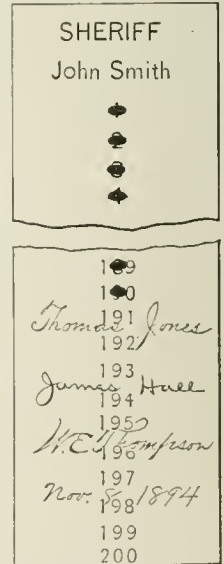 SHERIFF
John Smith
1
2
3
4
189
190
191
Thomas Jones
192
193
James Hall
194
195
W. E. Thompson
196
197
Nov. 8, 1894
198
199
200